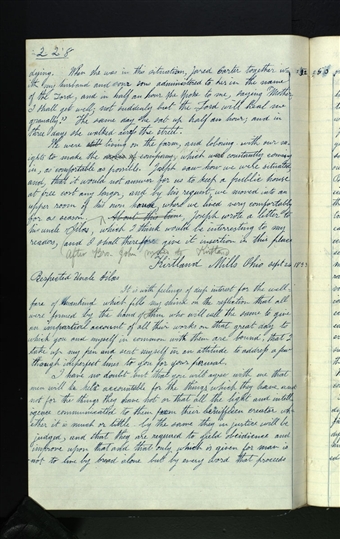 228
dying. When she was in this situation, Jared Carter together wi
th my husband and our son administered to her in the name
of the Lord, and in half an hour she spoke to me, saying Mother
I shall get well, not suddenly but the Lord will heal me
gradually. The same day she sat up half an hour; and in
three days she walked across the street.
We were still living on the farm, and laboring with our m
ight to make the of company, which was constantly coming
in, as comfortable as possible. Joseph saw how we were situated
and that it would not answer for us to keep a public house
at free cost any longer, and by his request we moved into an
upper room of his own house, where we lived very comfortably
for a season. About this time, Joseph wrote a letter to
his uncle Silas, which I think would be interesting to my
readers, and I shall therefore give it insertion in this place
after Bro. John Kirtland
Kirtland Mills Ohio Sept 26 1833
Respected Uncle Silas
It is with feelings of deep interest for the well
fare of mankind which fills my mind on the reflection that all
were formed by the hand of Him who will call the same to give
an impartial account of all their works on that great day to
which you and myself in common with them are bound, that I
take up my pen and seat myself in an attitude to address a few
though imperfect lines to you for your perusal.
I have no doubt but that you will agree with me that
men will be held accountable for the things which they have and
not for the things they have not or that all the light and intell
igence communicated to them from their beneficen creator wh
ether it is much or little by the same they in justice will be
judged, and that they are required to yield obedience and
improve upon that and that only which is given for man is
not to live by bread alone but by every word that proceeds